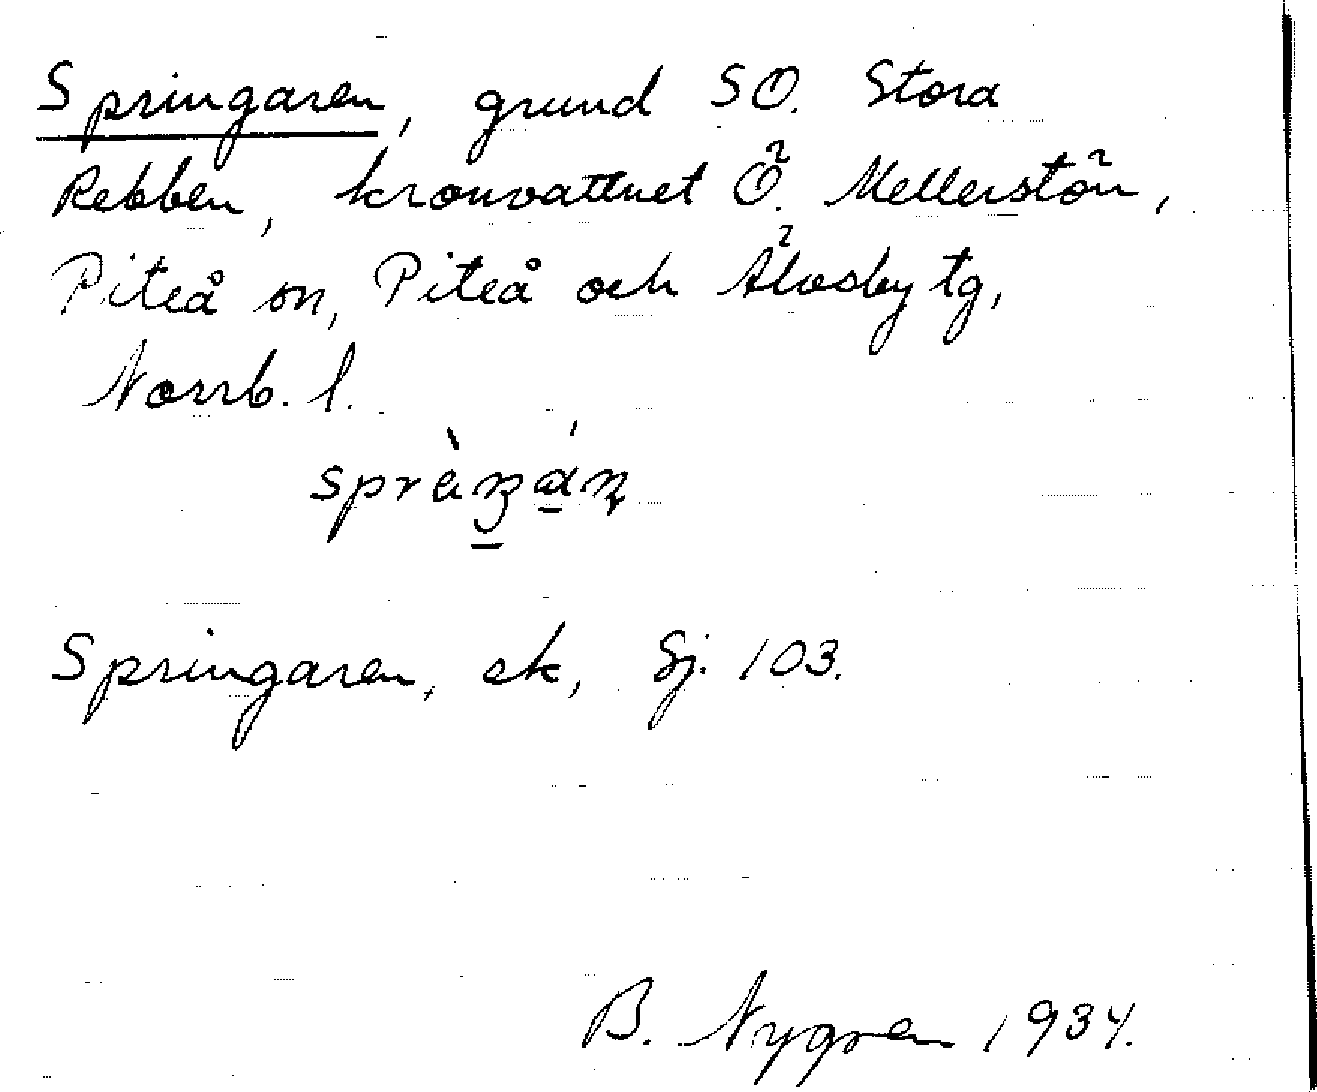 Springaren, grund SO. Stora
Rebben, kronvattnet Ö. Mellerstön,
Piteå sn, Piteå och Älvsby tg,
Norrb. l.
Springaren, sk, Sj. 103.
B. Nygren 1934.